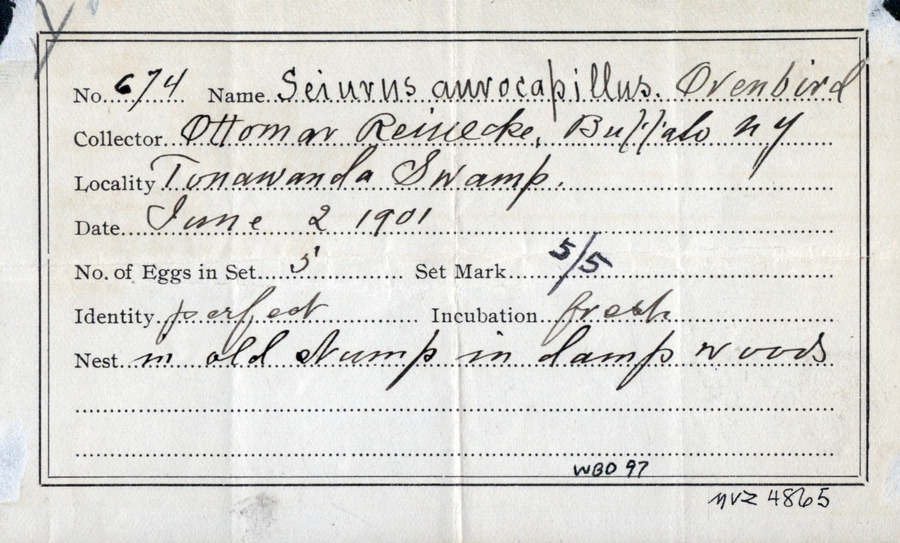 No. 674 Name. Seiurus aurocapillus. Ovenbird
Collector. Ottomar Reinecke, Buffalo NY
Locality Tonawanda Swamp.
Date. June 2 1901
No. of Eggs in Set. 5 Set Mark. 5/5
Identity perfect Incubation fresh
Nest in old stump in damp woods
WBD 97
MVZ 4865